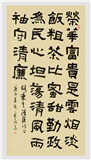 榮華富貴是雲烟淡
飯粗茶比蜜甜勤政
為民心坦蕩清風兩
袖守清廉